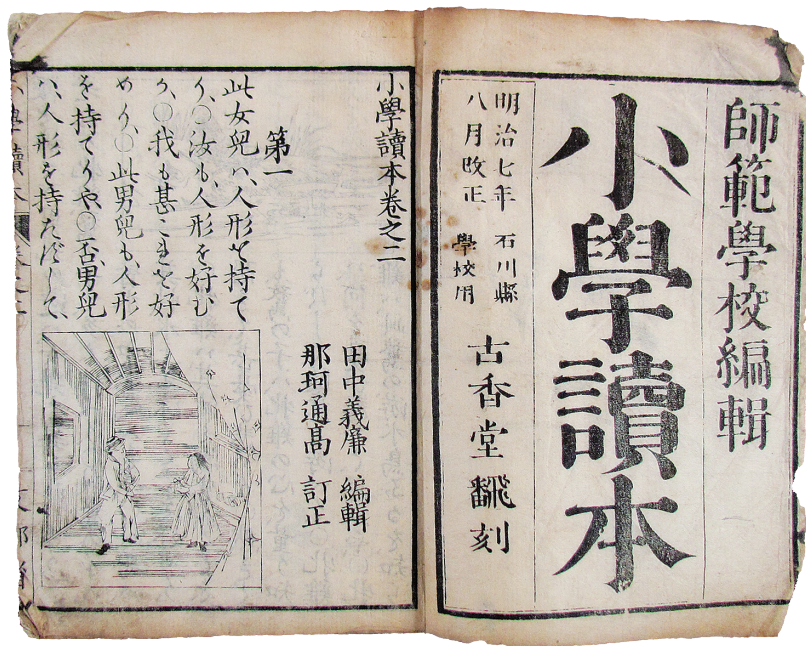 師範學校編輯
小學讀本
明治七年
八月改正
石川縣
學校用
古香堂 飜刻
小學讀本卷之二
田中義廉 編輯
那珂通髙 訂正
第一
此女兒ハ、人形を持て
り、○汝も、人形を好む
か、○我も甚これを好
めり、○此男兒も、人形
を持てりや、○否、男兒
ハ、人形を持たずして、